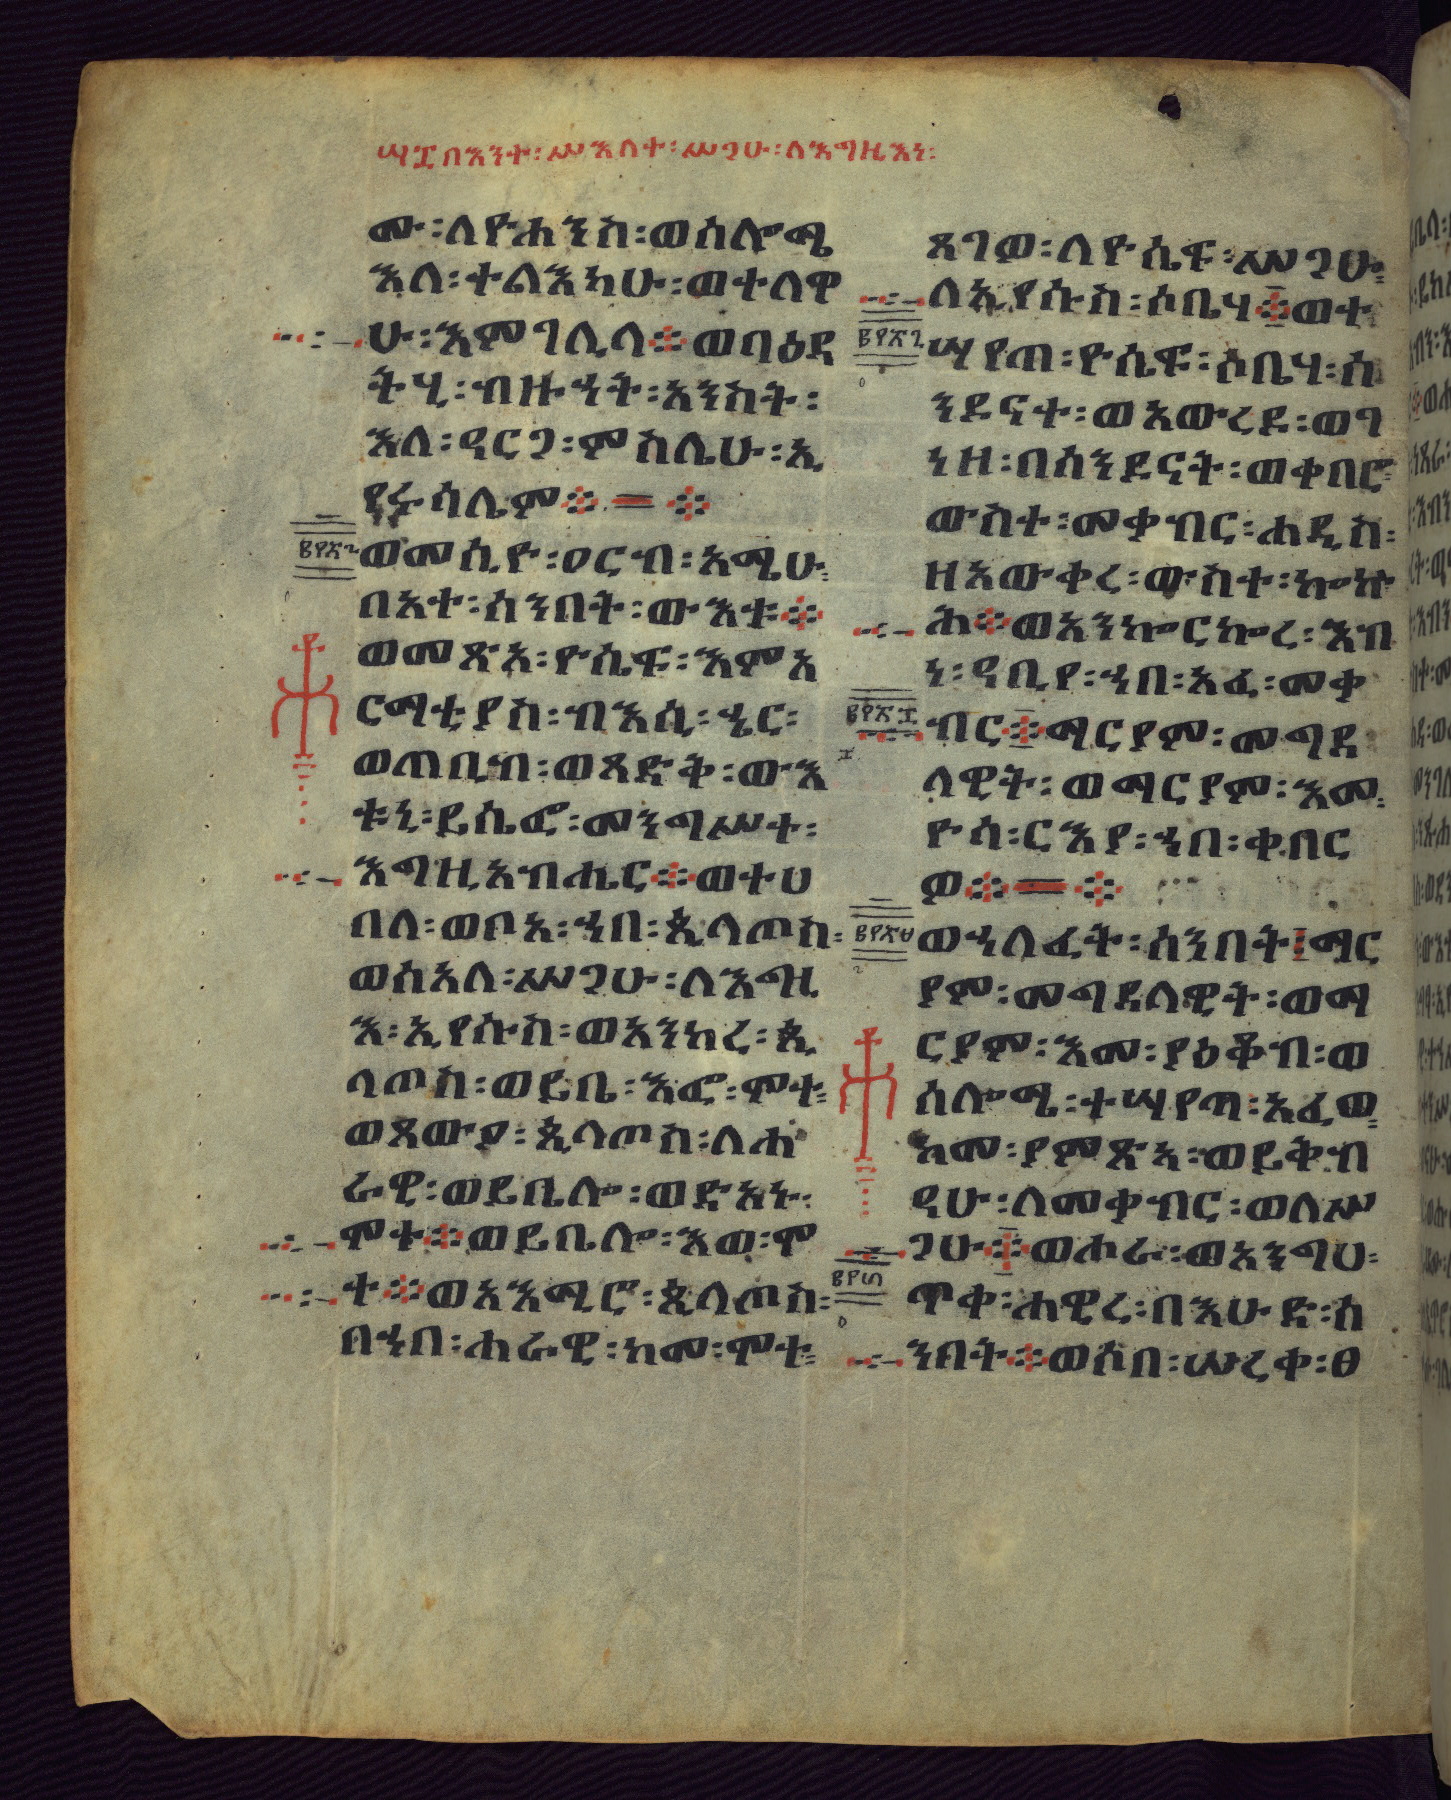 ፵፰ በእንተ፡ ሥእለተ፡ ሥጋሁ፡ ለእግዚእነ፡
ሙ፡ ለዮሐንስ፡ ወሰሎሜ
እለ፡ ተልእካሁ፡ ወተለዋ
ሁ፡ እምገሊላ፨ ወባዕዳ
ትሂ፡ ብዙኃት፡ አንስት፡
እለ፡ ዓርጋ፡ ምስሌሁ፡ ኢ
የሩሳሌም፨ ፨
ወመሲዮ፡ ዐርብ፡ እሜሁ፡
በአተ፡ ሰንበት፡ ውእቱ፨
ወመጽአ፡ ዮሴፍ፡ እምአ
ርማቲያስ፡ ብእሲ፡ ኄር፡
ወጠቢብ፡ ወጻድቅ፡ ውእ
ቱኒ፡ ይሴፎ፡ መንግሥተ፡
እግዚአብሔር፨ ወተሀ
በለ፡ ወቦአ፡ ኀበ፡ ጲላጦስ፡
ወሰአለ፡ ሥጋሁ፡ ለእግዚ
እ፡ ኢየሱስ፡ ወአንከረ፡ ጲ
ላጦስ፡ ወይቤ፡ እፎ፡ ሞተ፡
ወጸውዖ፡ ጲላጦስ፡ ለሐ
ራዊ፡ ወይቤሎ፡ ወድአኑ፡
ሞተ፨ ወይቤሎ፡ እወ፡ ሞ
ተ፨ ወአእሚሮ፡ ጲላጦስ፡
በኀበ፡ ሐራዊ፡ ከመ፡ ሞተ፡
ጸገወ፡ ለዮሴፍ፡ ሥጋሁ፡
ለኢየሱስ፡ ሶቤሃ፨ ወተ
ሣየጠ፡ ዮሴፍ፡ ሶቤሃ፡ ሰ
ንዶናተ፡ ወአውረደ፡ ወገ
ነዘ፡ በሰንዶናት፡ ወቀበሮ
ውስተ፡ መቃብር፡ ሐዲስ፡
ዘአውቀረ፡ ውስተ፡ ኰኵ
ሕ፨ ወአንኰርኰረ፡ እብ
ነ፡ ዓቢየ፡ ኀበ፡ አፈ፡ መቃ
ብር፨ ማርያም፡ መግደ
ላዊት፡ ወማርያም፡ እመ፡
ዮሳ፡ ርእያ፡ ኀበ፡ ቀበር
ዎ፨ ፨
ወኀለፈት፡ ሰንበት፡ ማር
ያም፡ መግደላዊት፡ ወማ
ርያም፡ እመ፡ ያዕቆብ፡ ወ
ሰሎሜ፡ ተሣየጣ፡ አፈወ፡
ከመ፡ ያምጽኣ፡ ወይቅብ
ዓሁ፡ ለመቃብር፡ ወለሥ
ጋሁ፨ ወሖራ፡ ወአንግሀ፡
ጥቀ፡ ሐዊረ፡ በእሁድ፡ ሰ
ንበት፨ ወሶበ፡ ሠረቀ፡ ፀ